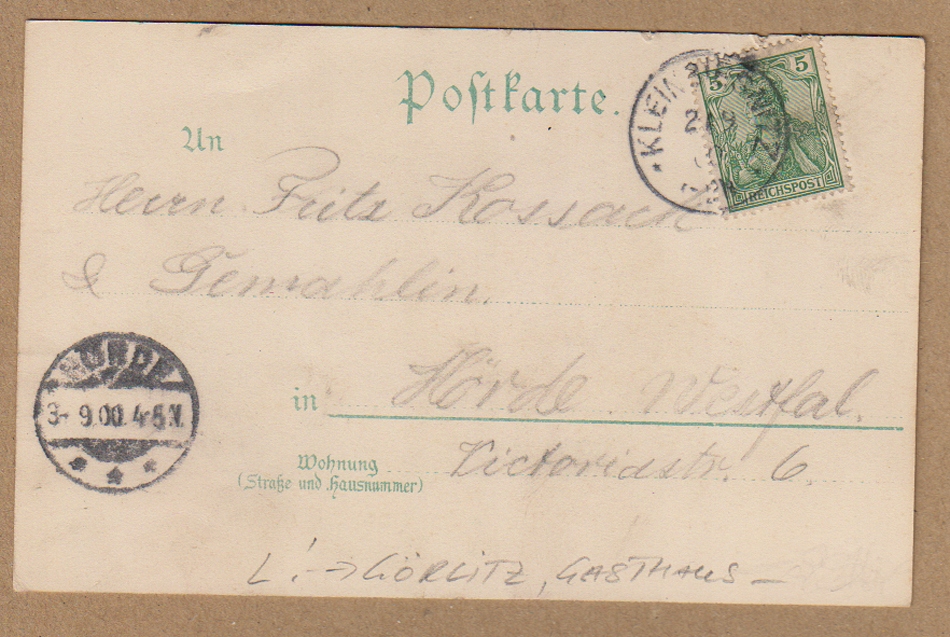 Postkarte.
5 5
REICHSPOST
An
Herrn Fritz Kossack
& Gemahlin.
HÖRDE
3- 9.00. 4-5.V.
in Hörde Westfal.
Wohnung
(Straße und Hausnummer)
Victoriastr. 6.
L! → GÖRLITZ, GASTHAUS –